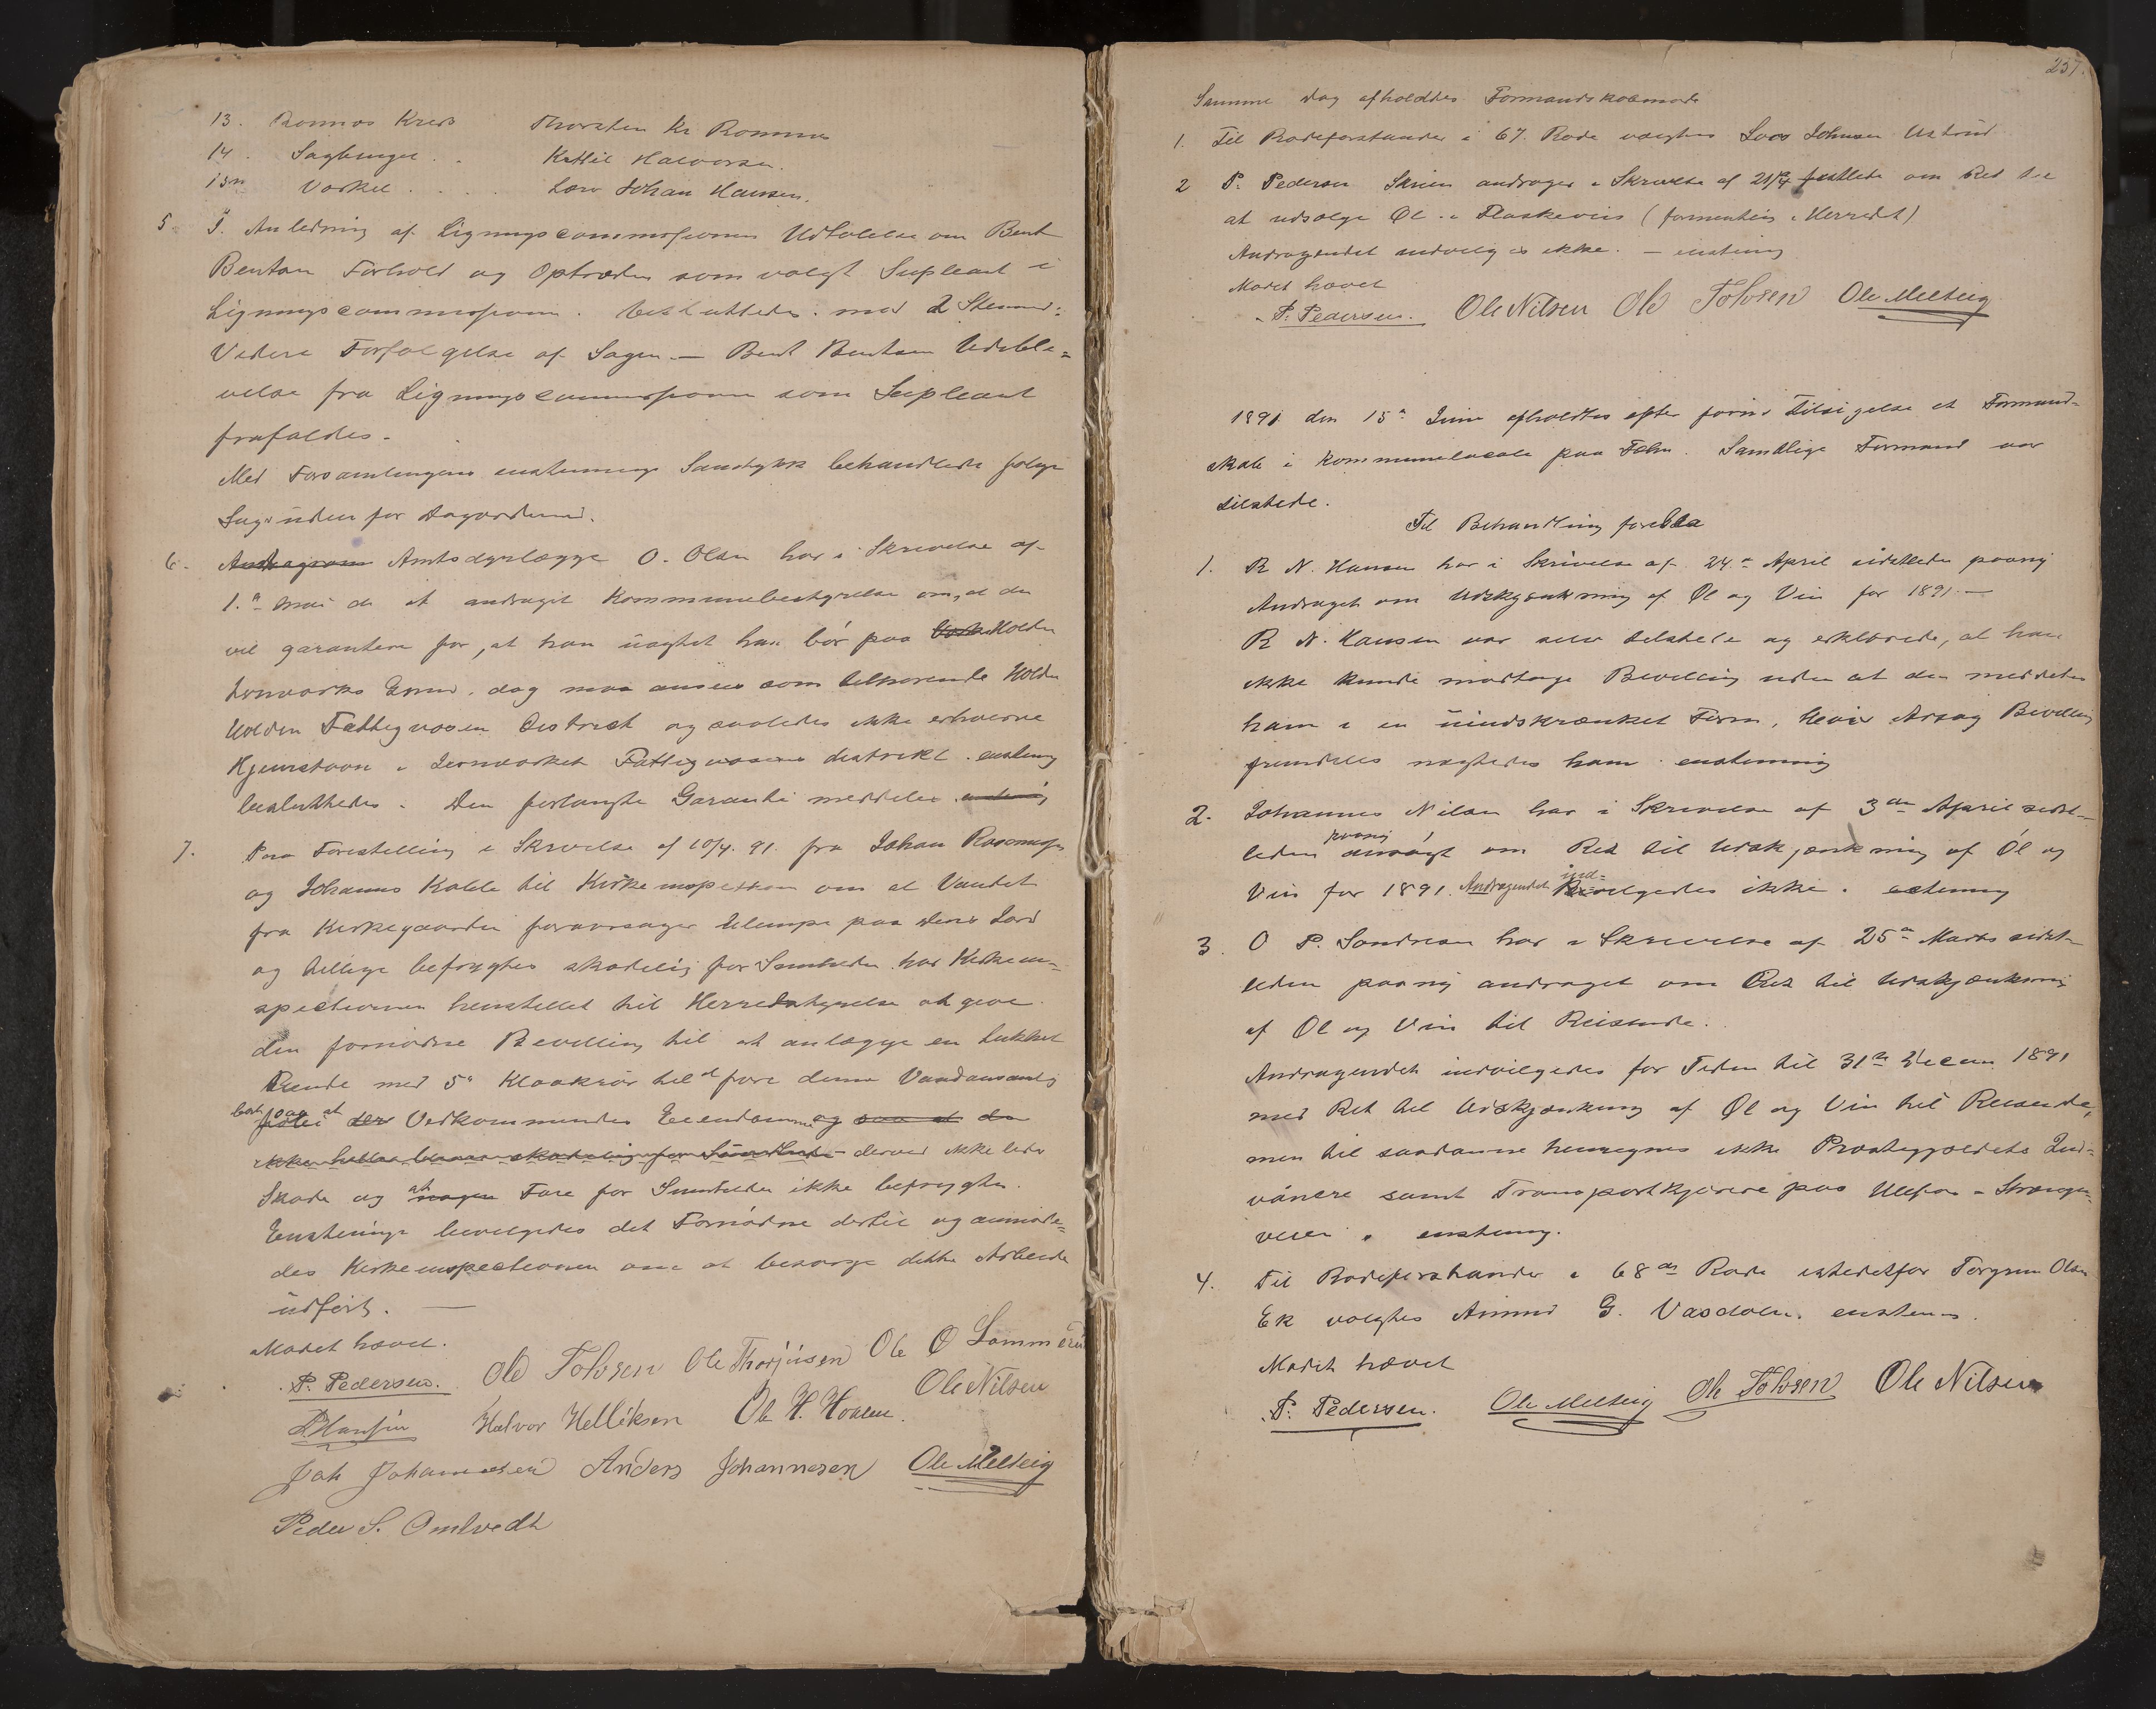 13. Romnos Kreds Thorsten Kr Romnus
14. Sagbruget . . Kittil Halvorsen
15de Vorkel . . . . Lars Johan Hansen.
5. I Anledning af Ligningscommissionens Udtalelse om Bent
Bentsen Forhold og Optræden som valgt Supleant i
Ligningscommissionen. besluttedes. med 2 Stemmer:
Videre Forfølgelse af Sagen — Bent Bentsen Udeble=
velse fra Ligningscommissionen som Supleant
frafaldes.
Med Forsamlingens enstemmige Samtykke behandledes følge
Sager uden for Dagsordenen.
6. Amtsdyrlæge O. Olsen har i Skrivelse af
1.ste Mai d. A. andraget Kommunebestyrelse om, at den
vil garantere for, at han uagtet han bór paa Holden
Jernværks Grund, dog maa ansees som tilhørende Holden
Holden Fattigvæsen District og saaledes ikke erhverve
Hjemstavn i Jernværket Fattigvæsens distrikt. enstemig
besluttedes. Den forlangte Garanti meddeles
7. Paa Forestilling i Skrivelse af 10/4. 91. fra Johan Rasmusen
og Johannes Kolde til Kirkeinspektion om at Vandet
fra Kirkegaarden foraarsager Ulempe paa deres Jord
og tillige befrygtes skadelig for Sundheden har Kirkein=
spectionen henstillet til Herredsstyrelse at give
den fornødne Bevilling til at anlægge en lukket
Rende med 5" Kloakrör til at føre denne Vandansamlig
bort paa at Vedkommendes Eiendomme
derved ikke lider
Skade og at Fare for Sundheden ikke befrygtes.
Enstemige bevilgedes det Fornødne dertil og anmode=
des Kirkeinspectionen om at besørge dette Arbeide
udført. —
Mødet hævet.
P. Pedersen. Ole Tolvsen Ole Thorjusen Ole O Lommerud
Hansen Halvor Kelliksen Ole H. Hoalen. Ole Nilsen
Joh Johannesen Anders Johannesen Ole Melteig
Peder S. Omtvedt
257.
Samme Dag afholdtes Formandskabsmøde
1. Til Rodeforstander i 67. Rode valgtes Lars Johnsen Ustrud
2 P. Pedersen Skien andrager i Skrivelse af 21/4 sidstleden om Ret til
at udsælge Øl i Flaskevis (formentlig i Herredet)
Andragendet indvilges ikke. — enstemig
Mødet hævet
P. Pedersen. Ole Nilsen Ole Tolvsen Ole Melteig
1891 den 15de Juni afholdtes efter foreg. Tilsigelse et Formand=
skab i Kommunelocale paa Fahn. Samtlige Formænd var
tilstede.
Til Behandling forelaa
1. R N. Hansen har i Skrivelse af 24.de April sidstleden paany
Andraget om Udskjænkning af Øl og Vin for 1891. —
R N. Hansen var selv tilstede og erklærede, at han
ikke kunde modtage Bevilling uden at den meddeltes
ham i en uindskrænket Form, Hvis Aarsag Bevilling
fremdeles nægtedes ham. enstemmig
2. Johannes Nilsen har i Skrivelse af 3die April sidst=
leden paany ansøgt om Ret til Udskjænkning af Øl og
Vin for 1891. Andragendet ind=vilgedes ikke. estemig
3. O P. Sondresen har i Skrivelse af 25de Marts sidst=
leden paany andraget om Ret til Udskjænkning
af Øl og Vin til Reisende.
Andragendet indvilgedes for Tiden til 31te Decem 1891
med Ret til Udskjænkning af Øl og Vin til Reisende,
men til saadanne henregnes ikke Præstegjældets Ind=
vånere samt Transportkjørere paa Ulefos - Strengen=
veien. enstemig.
4. Til Rodeforstander i 68de Rode istedetfor Torgrim Olsen
Ek valgtes Amund G. Vasdalen. enstem.
Mødet hævet
P. Pedersen. Ole Melteig Ole Tolvsen Ole Nilsen